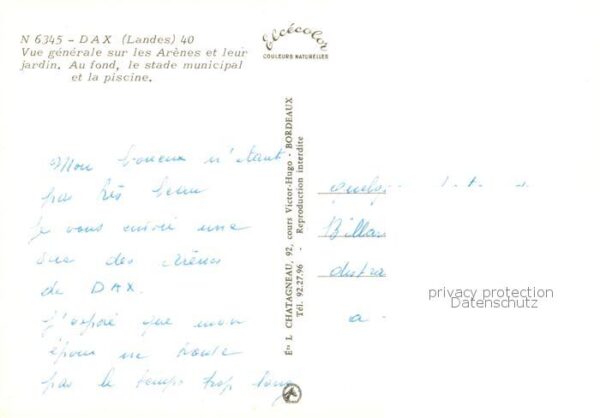 N 6345 - DAX (Landes) 40
Vue générale sur les Arènes et leur
jardin. Au fond, le stade municipal
et la piscine.
Elcécolor
COULEURS NATURELLES
Mon n'étant
pas très beau
Je vous envoie une
vue des Arènes
de DAX.
J'espère que mon
époux ne trouve
pas le temps trop long
Éts L. CHATAGNEAU, 92, cours Victor-Hugo - BORDEAUX
Tél. 92.27.96 - Reproduction interdite
quelq
Billar
distra
a
privacy protection
Datenschutz